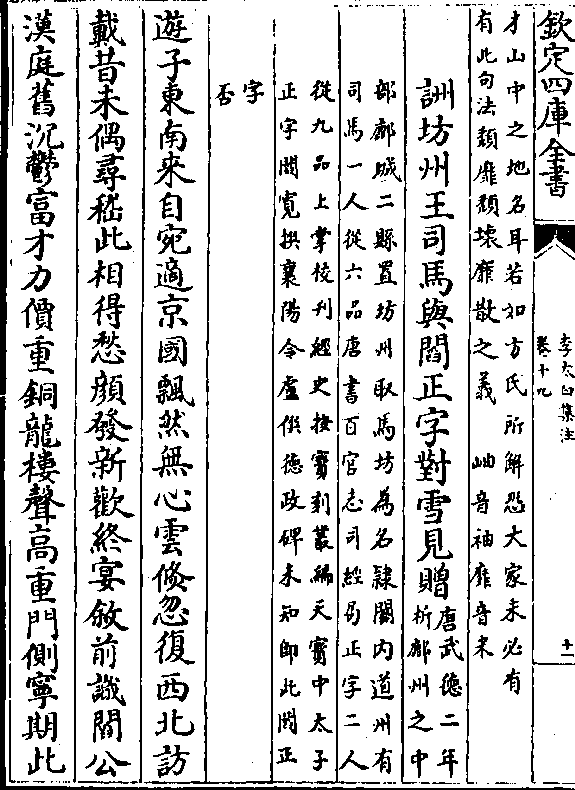 欽定四庫全書
李太白集注
卷十九
十一
才山中之地名耳若如方氏所解恐大家未必有
有此句法頽靡頽壊靡散之義　岫音袖靡音米
詶坊州王司馬與閻正字對雪見贈
唐武德二年
析鄜州之中
部鄜城二縣置坊州取馬坊為名隷關内道州有
司馬一人從六品唐書百官志司經局正字二人
從九品上掌校刊經史按寶刻叢編天寶中太子
正字閻寛撰襄陽令盧僎德政碑未知即此閻正
字
否
遊子東南來自宛適京國飄然無心雲倏忽復西北訪
戴昔未偶尋嵇此相得愁顔發新歡終宴敘前識閻公
漢庭舊沉鬱富才力價重銅龍樓聲高重門側寧期此